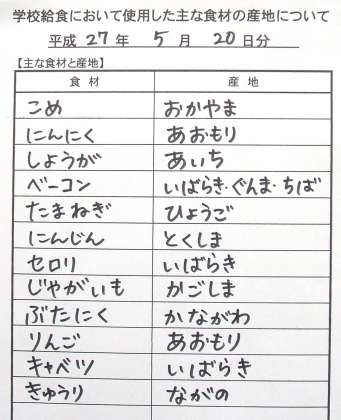 学校給食において使用した主な食材の産地について
平成 27 年 5 月 20 日分
【主な食材と産地】
食材 産地
こめ おかやま
にんにく あおもり
しょうが あいち
ベーコン いばらき・ぐんま・ちば
たまねぎ ひょうご
にんじん とくしま
セロリ いばらき
じゃがいも かごしま
ぶたにく かながわ
りんご あおもり
キャベツ いばらき
きゅうり ながの